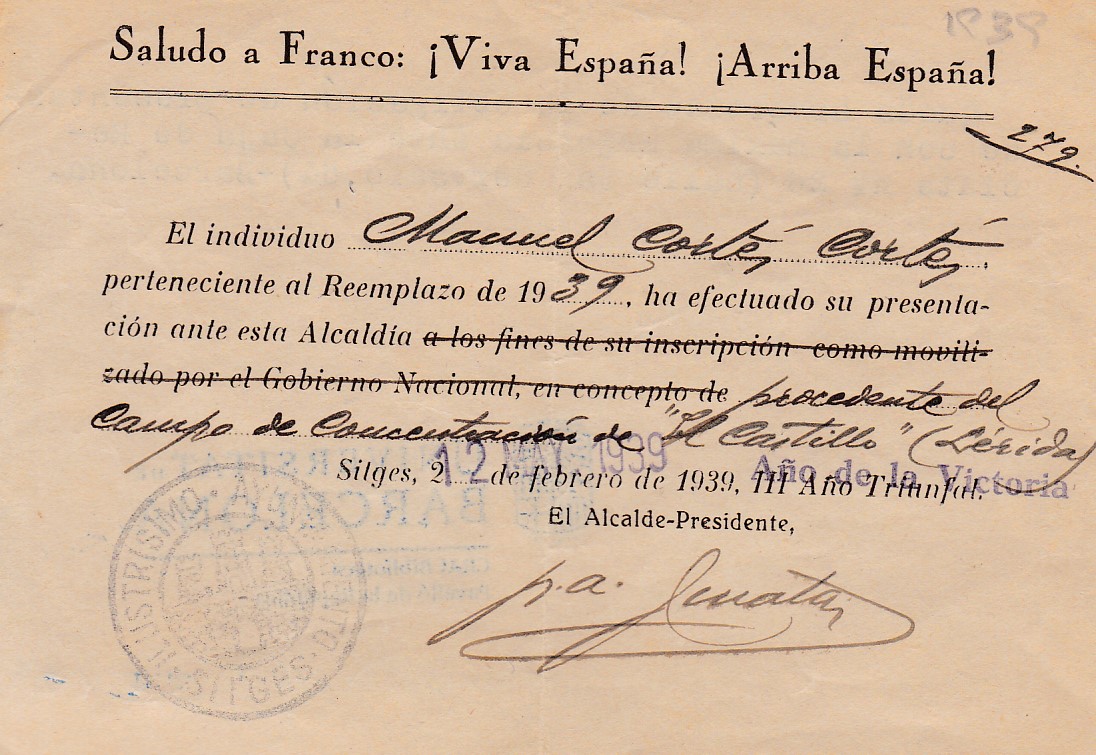 1939
Saludo a Franco: ¡Viva España! ¡Arriba España!
279.
El individuo Manuel Cortés Cortés,
perteneciente al Reemplazo de 1939, ha efectuado su presenta-
ción ante esta Alcaldía a los fines de su inscripción como movili-
zado por el Gobierno Nacional, en concepto de procedente del
Campo de Concentración de "El Castillo" (Lérida)
12 MAY. 1939
Año de la Victoria
Sitges, 2 de febrero de 1939, III Año Triunfal.
El Alcalde-Presidente,
p.a.
ILUSTRISIMO · SITGES ·
UNIVERSITAT
BARCELONA